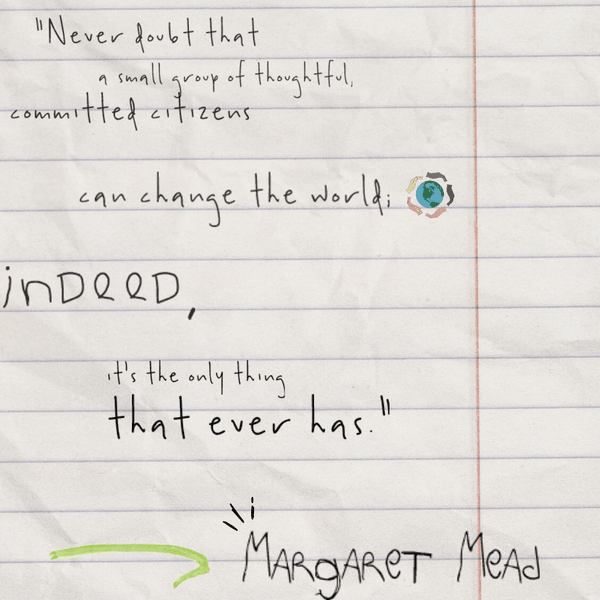 "Never doubt that
a small group of thoughtful,
committed citizens
can change the world;
inDeeD,
it's the only thing
that ever has."
MARgAReT MeAd